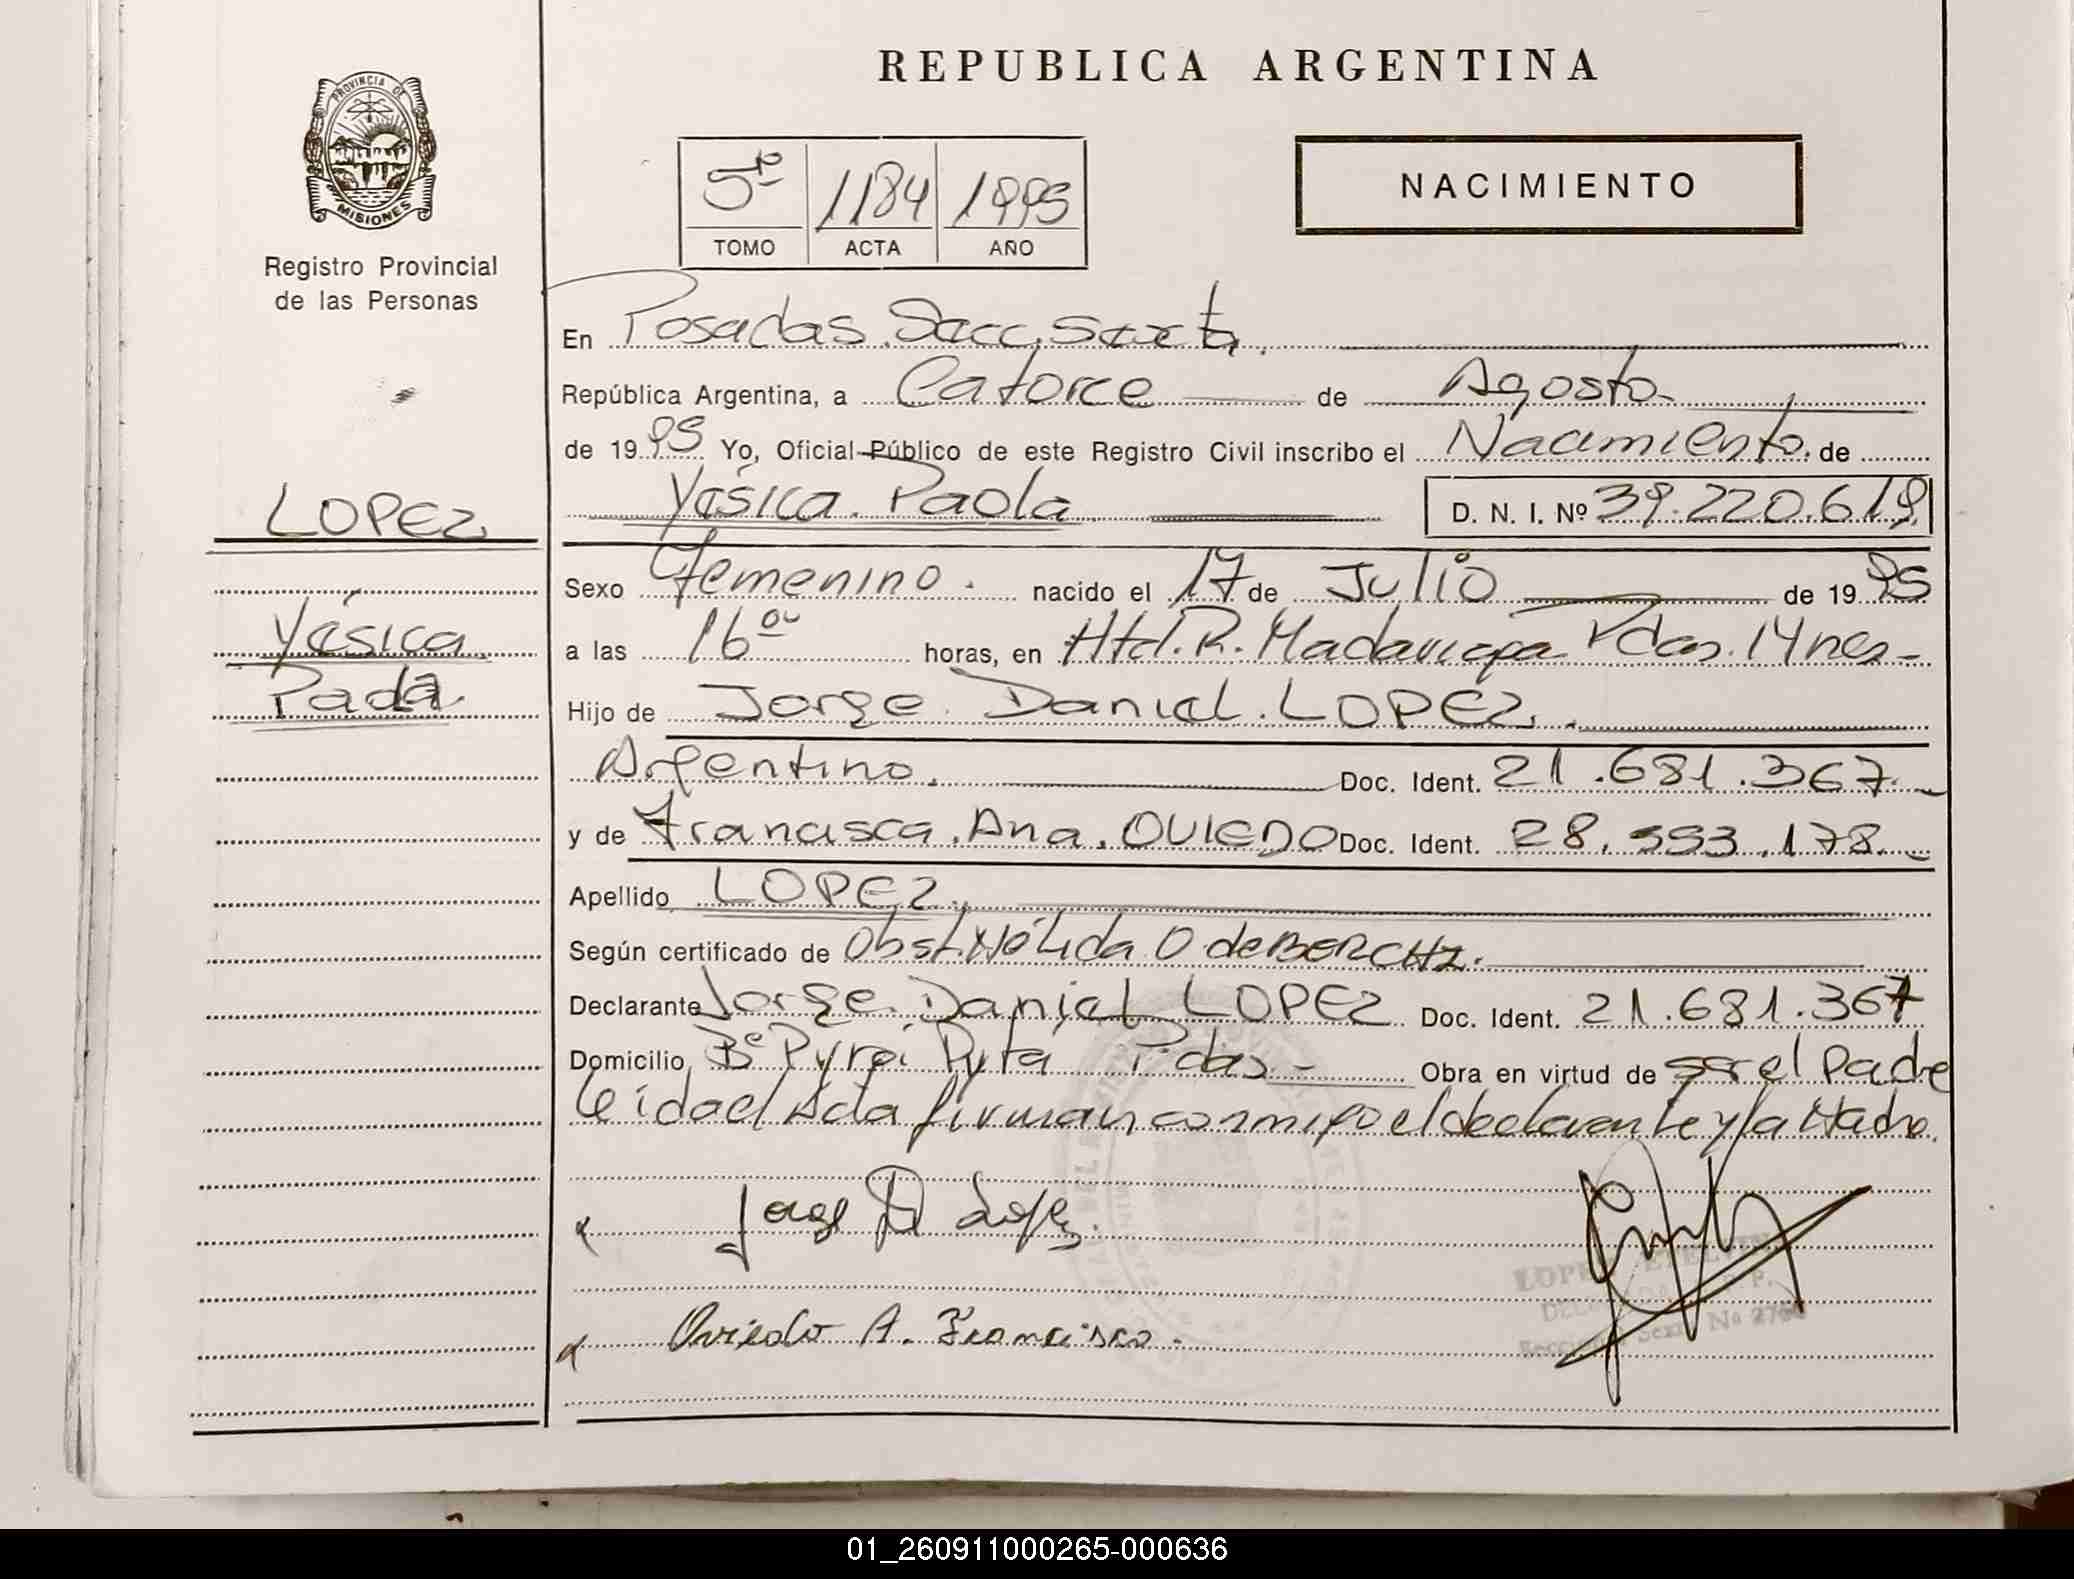 REPUBLICA ARGENTINA
PROVINCIA DE
MISIONES
Registro Provincial
de las Personas
5º 1184 1995
TOMO ACTA AÑO
NACIMIENTO
LOPEZ
Yésica
Paola
En Posadas. Secc. Sexta.
República Argentina, a Catorce de Agosto
de 1995 Yo, Oficial Público de este Registro Civil inscribo el Nacimiento de
Yésica Paola D. N. I. Nº 39.220.619
Sexo Femenino. nacido el 17 de Julio de 1995
a las 16 horas, en Htal. R. Madariaga Pdas. Mnes-
Hijo de Jorge Daniel LOPEZ.
Argentino. Doc. Ident. 21.681.367.
y de Francisca Ana OVIEDO Doc. Ident. 28.553.178.
Apellido LOPEZ.
Según certificado de Obst. Nélida O. de BERCHZ.
Declarante Jorge Daniel LOPEZ Doc. Ident. 21.681.367
Domicilio Bº Pyroi Pyta Pdas - Obra en virtud de ser el Padre
Leida el Acta firman conmigo el declarante y la Madre.
Jorge D Lopez.
Oviedo A. Francisca.
LOPEZ
Sección Sexta Nº 2766
01_260911000265-000636